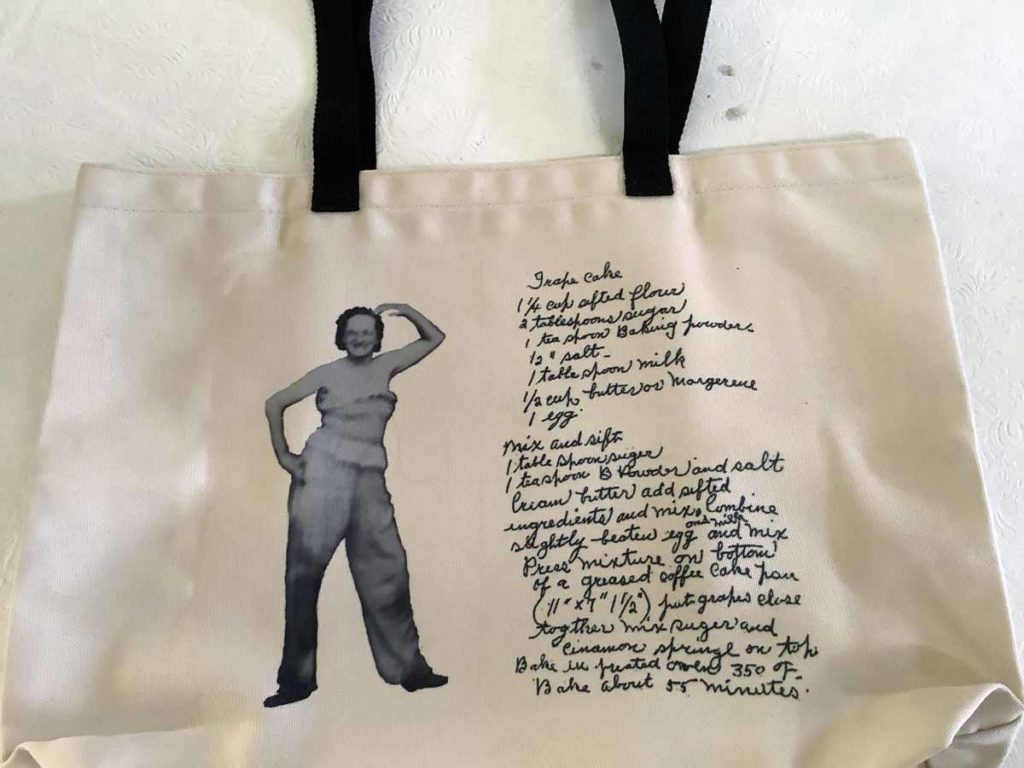 Grape cake
1 1/4 cup sifted flour
2 tablespoons sugar
1 teaspoon Baking powder
1/2 " salt
1 table spoon milk
1/2 cup butter or Margerene
1 egg
Mix and sift
1 table spoon suger
1 teaspoon B Powder and salt
Cream butter add sifted
ingredients and mix. Combine
slightly beaten egg and milk and mix
Press mixture on bottom
of a greased coffee cake pan
(11" x 7" 1 1/2") put grapes close
together mix suger and
cinamon springe on top
Bake in preated oven 350 of.
Bake about 55 minutes.